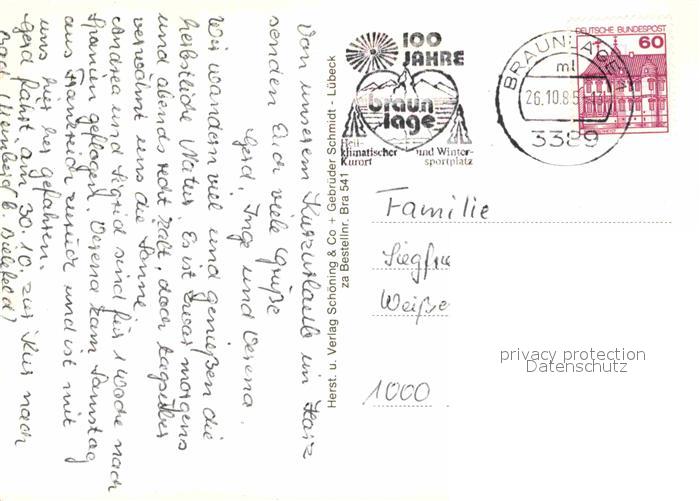 Von unserem Kurzurlaub im Harz
senden Euch viele Grüße
Gerd, Inge und Verena.
Wir wandern viel und genießen die
herbstliche Natur. Es ist zwar morgens
und abends recht kalt, doch tagsüber
verwöhnt uns die Sonne.
Andrea und Sigrid sind für 1 Woche nach
Spanien geflogen. Verena kam Samstag
aus Frankreich zurück und ist mit
uns hier her gefahren.
Gerd fährt am 30.10. zur Kur nach
Bad Meinberg b. Bielefeld)
Herst. u. Verlag Schöning & Co + Gebrüder Schmidt - Lübeck
za Bestellnr. Bra 541
100
JAHRE
braun
lage
Heil-
klimatischer und Winter-
Kurort sportplatz
BRAUNLAGE 1
ml
26.10.85
3389
DEUTSCHE BUNDESPOST
60
Familie
Siegfrie
Weiße
1000
privacy protection
Datenschutz